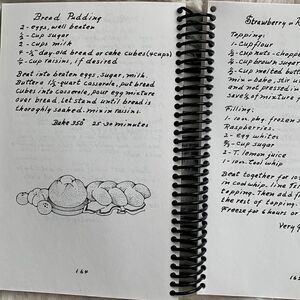 Bread Pudding
2 - eggs, well beaten
½ - cup sugar
2 - cups milk
4 - ½" day-old bread or cake cubes (4 cups)
¼ - cup raisins, if desired
Beat into beaten eggs, sugar, milk.
Butter a ½-quart casserole, put bread
cubes into casserole, pour egg mixture
over bread, let stand until bread is
thoroughly soaked. mix in raisins.
Bake 350° 25-30 minutes
164
Strawberry - R
Topping:
1 - Cup flour
½ - cup nuts - chopped
¼ - cup brown sugar
½ - cup melted butter
mix & bake, stir
and not pressed in
save ⅓ of mixture
Filling:
1 - 10 oz. pkg. frozen s
Raspberries.
2 - Egg whites
⅔ - cup sugar
2 - T. lemon juice
1 - 10 oz. Cool whip
Beat together for 10
in cool whip. line 13x
topping. Then add f
the rest of topping.
Freeze for 6 hours or
Very g
165